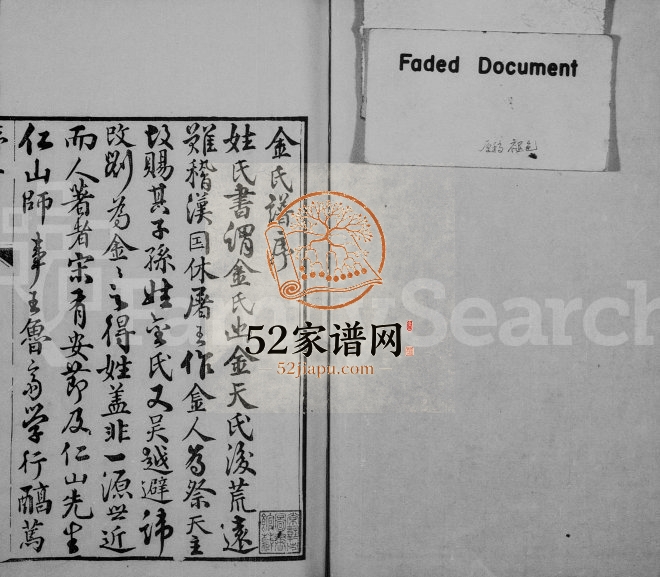 Faded Document
原稿褪色
金氏谱序
姓氏書謂金氏出金天氏後荒遠
難稽漢国休屠王作金人為祭天主
故賜其子孫姓金氏又吴越避諱
改劉為金〻之得姓盖非一源世近
而人著者宋有安節及仁山先生
仁山師事王魯斋学行醇篤
52家谱网
52jiapu.com
FamilySearch